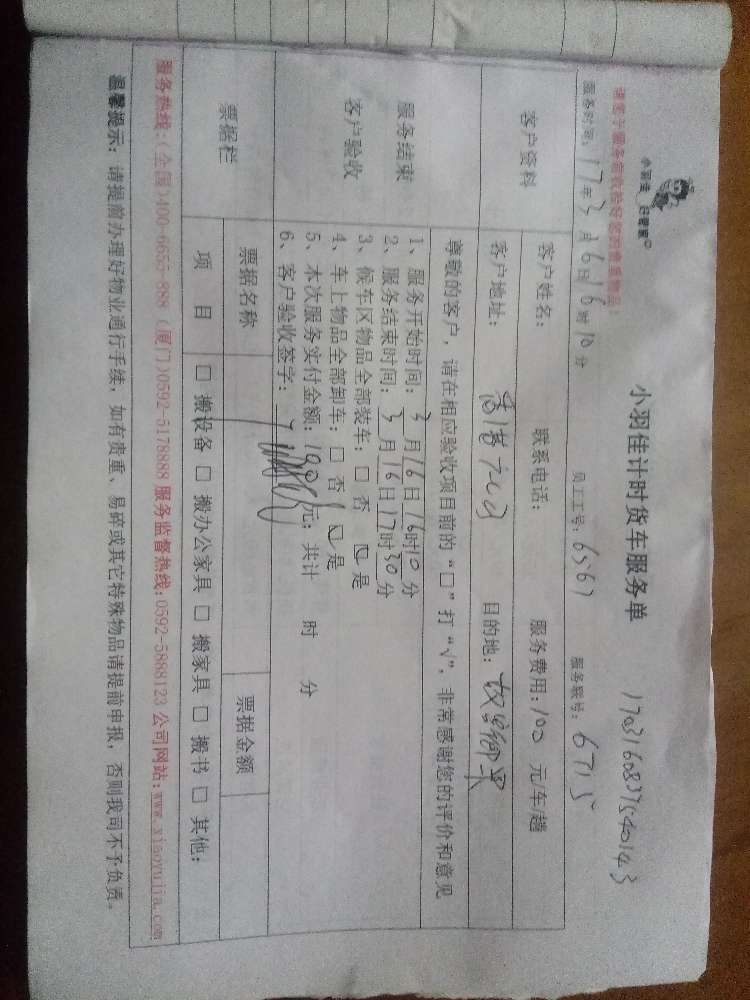 小羽佳 好管家
小羽佳计时货车服务单
1703160837540143
请客户服务前收拾好您的贵重物品!
服务时间: 17年3月16日16时10分 员工工号: 6567 服务联号: 6715
客户资料
客户姓名: 联系电话: 服务费用: 100 元/车/趟
客户地址: 目的地:
尊敬的客户, 请在相应验收项目前的“□”打“√”, 非常感谢您的评价和意见
服务结束
客户验收
1、服务开始时间: 3月16日16时10分
2、服务结束时间: 3月16日17时30分
3、候车区物品全部装车: □ 否 ☑ 是
4、车上物品全部卸车: □ 否 ☑ 是
5、本次服务实付金额: 190元; 共计 时 分
6、客户验收签字:
票据栏
票据名称 票据金额
项 目 □ 搬设备 □ 搬办公家具 □ 搬家具 □ 搬书 □ 其他:
服务热线:(全国)400-6655-888 (厦门)0592-5178888 服务监督热线:0592-5888123 公司网站:www.xiaoyujia.com
温馨提示: 请提前办理好物业通行手续, 如有贵重、易碎或其它特殊物品请提前申报, 否则我司不予负责。